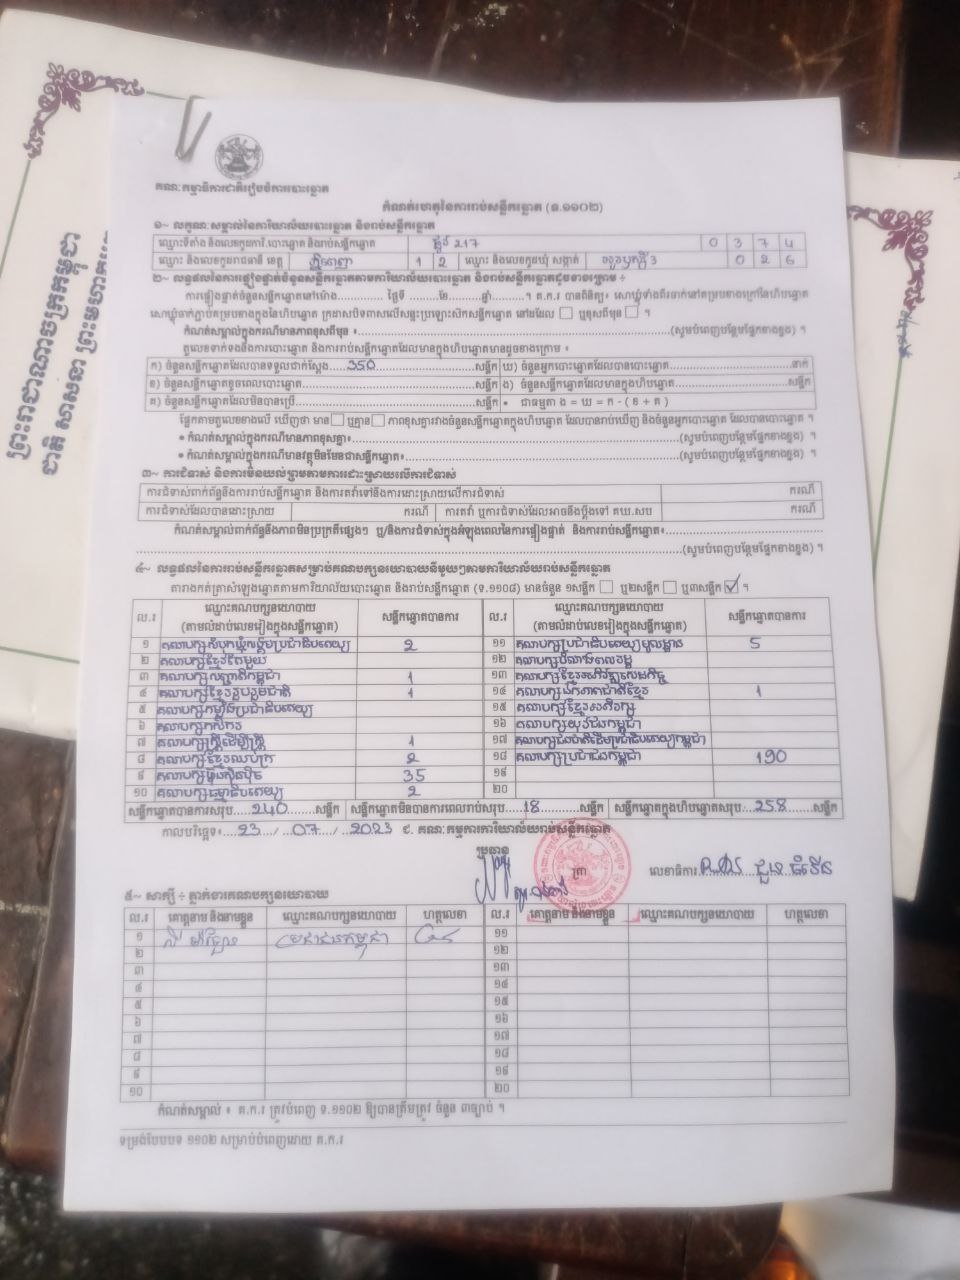 ព្រះរាជាណាចក្រកម្ពុជា
ជាតិ សាសនា ព្រះមហាក្សត្រ
គណៈកម្មាធិការជាតិរៀបចំការបោះឆ្នោត
កំណត់ហេតុនៃការរាប់សន្លឹកឆ្នោត (ទ.១១០២)
១~ លក្ខណៈសម្គាល់នៃការិយាល័យបោះឆ្នោត និងរាប់សន្លឹកឆ្នោត
ឈ្មោះទីតាំង និងលេខកូដការិ.បោះឆ្នោត និងរាប់សន្លឹកឆ្នោត 217 0 3 7 4
ឈ្មោះ និងលេខកូដរាជធានី ខេត្ត ភ្នំពេញ 1 2 ឈ្មោះ និងលេខកូដឃុំ សង្កាត់ 3 0 2 6
២~ លទ្ធផលនៃការផ្ទៀងផ្ទាត់ចំនួនសន្លឹកឆ្នោតតាមការិយាល័យបោះឆ្នោត និងរាប់សន្លឹកឆ្នោតដូចខាងក្រោម ÷
ការផ្ទៀងផ្ទាត់ចំនួនសន្លឹកឆ្នោតនៅម៉ោង............ ថ្ងៃទី ........ខែ.........ឆ្នាំ.........។ គ.ក.រ បានពិនិត្យ៖ សោឃ្លុំទាំងពីរចាក់នៅគម្របខាងក្រៅនៃហិបឆ្នោត
សោឃ្លុំចាក់ភ្ជាប់គម្របខាងក្នុងនៃហិបឆ្នោត ក្រដាសបិទពាសលើសន្ទះប្រឡោះសិកសន្លឹកឆ្នោត នៅដដែល ☐ ឬខុសពីមុន ☐ ។
កំណត់សម្គាល់ក្នុងករណីមានភាពខុសពីមុន ៖..........(សូមបំពេញបន្ថែមផ្នែកខាងខ្នង) ។
តួលេខទាក់ទងនឹងការបោះឆ្នោត និងការរាប់សន្លឹកឆ្នោតដែលមានក្នុងហិបឆ្នោតមានដូចខាងក្រោម ៖
ក) ចំនួនសន្លឹកឆ្នោតដែលបានទទួលជាក់ស្តែង....350....សន្លឹក ឃ) ចំនួនអ្នកបោះឆ្នោតដែលបានបោះឆ្នោត........នាក់
ខ) ចំនួនសន្លឹកឆ្នោតខូចពេលបោះឆ្នោត........សន្លឹក ង) ចំនួនសន្លឹកឆ្នោតដែលមានក្នុងហិបឆ្នោត........សន្លឹក
គ) ចំនួនសន្លឹកឆ្នោតដែលមិនបានប្រើ........សន្លឹក • ជាធម្មតា ង = ឃ = ក - ( ខ + គ )
ផ្អែកតាមតួលេខខាងលើ ឃើញថា មាន ☐ ឬគ្មាន ☐ ភាពខុសគ្នារវាងចំនួនសន្លឹកឆ្នោតក្នុងហិបឆ្នោត ដែលបានរាប់ឃើញ និងចំនួនអ្នកបោះឆ្នោត ដែលបានបោះឆ្នោត ។
• កំណត់សម្គាល់ក្នុងករណីមានភាពខុសគ្នា៖..........(សូមបំពេញបន្ថែមផ្នែកខាងខ្នង) ។
• កំណត់សម្គាល់ក្នុងករណីមានវត្ថុមិនមែនជាសន្លឹកឆ្នោត៖..........(សូមបំពេញបន្ថែមផ្នែកខាងខ្នង) ។
៣~ ការជំទាស់ និងការមិនយល់ព្រមតាមការដោះស្រាយលើការជំទាស់
ការជំទាស់ពាក់ព័ន្ធនឹងការរាប់សន្លឹកឆ្នោត និងការតវ៉ាទៅនឹងការដោះស្រាយលើការជំទាស់ ករណី
ការជំទាស់ដែលបានដោះស្រាយ ករណី ការតវ៉ា ឬការជំទាស់ដែលអាចនឹងប្តឹងទៅ គឃ.សប ករណី
កំណត់សម្គាល់ពាក់ព័ន្ធនឹងភាពមិនប្រក្រតីផ្សេងៗ ឬ/និងការជំទាស់ក្នុងអំឡុងពេលនៃការផ្ទៀងផ្ទាត់ និងការរាប់សន្លឹកឆ្នោត៖..........
..........(សូមបំពេញបន្ថែមផ្នែកខាងខ្នង) ។
៤~ លទ្ធផលនៃការរាប់សន្លឹកឆ្នោតសម្រាប់គណបក្សនយោបាយនីមួយៗតាមការិយាល័យរាប់សន្លឹកឆ្នោត
តារាងកត់ត្រាសំឡេងឆ្នោតតាមការិយាល័យបោះឆ្នោត និងរាប់សន្លឹកឆ្នោត (ទ.១១០៨) មានចំនួន ១សន្លឹក ☐ ឬ២សន្លឹក ☐ ឬ៣សន្លឹក ☑ ។
ល.រ ឈ្មោះគណបក្សនយោបាយ សន្លឹកឆ្នោតបានការ ល.រ ឈ្មោះគណបក្សនយោបាយ សន្លឹកឆ្នោតបានការ
(តាមលំដាប់លេខរៀងក្នុងសន្លឹកឆ្នោត) (តាមលំដាប់លេខរៀងក្នុងសន្លឹកឆ្នោត)
១ គណបក្សសំបុកឃ្មុំសង្គមប្រជាធិបតេយ្យ 2 ១១ គណបក្សប្រជាធិបតេយ្យមូលដ្ឋាន 5
២ គណបក្សខ្មែរតែមួយ ១២
៣ គណបក្សកម្ពុជា 1 ១៣ គណបក្សខ្មែរអភិវឌ្ឍន៍សេដ្ឋកិច្ច
៤ គណបក្សខ្មែររួបរួមជាតិ 1 ១៤ គណបក្សឯកភាពជាតិខ្មែរ 1
៥ គណបក្សកម្លាំងប្រជាធិបតេយ្យ ១៥ គណបក្សខ្មែរអភិរក្ស
៦ គណបក្សកសិករ ១៦ គណបក្សយុវជនកម្ពុជា
៧ គណបក្សស្ត្រីដើម្បីស្ត្រី 1 ១៧ គណបក្សជនជាតិដើមប្រជាធិបតេយ្យកម្ពុជា
៨ គណបក្សខ្មែរឈប់ក្រ 2 ១៨ គណបក្សប្រជាជនកម្ពុជា 190
៩ គណបក្សហ្វ៊ុនស៊ិនប៉ិច 35 ១៩
១០ គណបក្សធម្មាធិបតេយ្យ 2 ២០
សន្លឹកឆ្នោតបានការសរុប...240...សន្លឹក សន្លឹកឆ្នោតមិនបានការពេលរាប់សរុប...18...សន្លឹក សន្លឹកឆ្នោតក្នុងហិបឆ្នោតសរុប...258...សន្លឹក
កាលបរិច្ឆេទ៖...23.../...07.../...2023 ជ. គណៈកម្មការការិយាល័យរាប់សន្លឹកឆ្នោត
ប្រធាន
ត្រា លេខាធិការ
៥~ សាក្សី ÷ ភ្នាក់ងារគណបក្សនយោបាយ
ល.រ គោត្តនាម និងនាមខ្លួន ឈ្មោះគណបក្សនយោបាយ ហត្ថលេខា ល.រ គោត្តនាម និងនាមខ្លួន ឈ្មោះគណបក្សនយោបាយ ហត្ថលេខា
១ ប្រជាជនកម្ពុជា ១១
២ ១២
៣ ១៣
៤ ១៤
៥ ១៥
៦ ១៦
៧ ១៧
៨ ១៨
៩ ១៩
១០ ២០
កំណត់សម្គាល់ ៖ គ.ក.រ ត្រូវបំពេញ ទ.១១០២ ឱ្យបានត្រឹមត្រូវ ចំនួន ៣ច្បាប់ ។
ទម្រង់បែបបទ ១១០២ សម្រាប់បំពេញដោយ គ.ក.រ